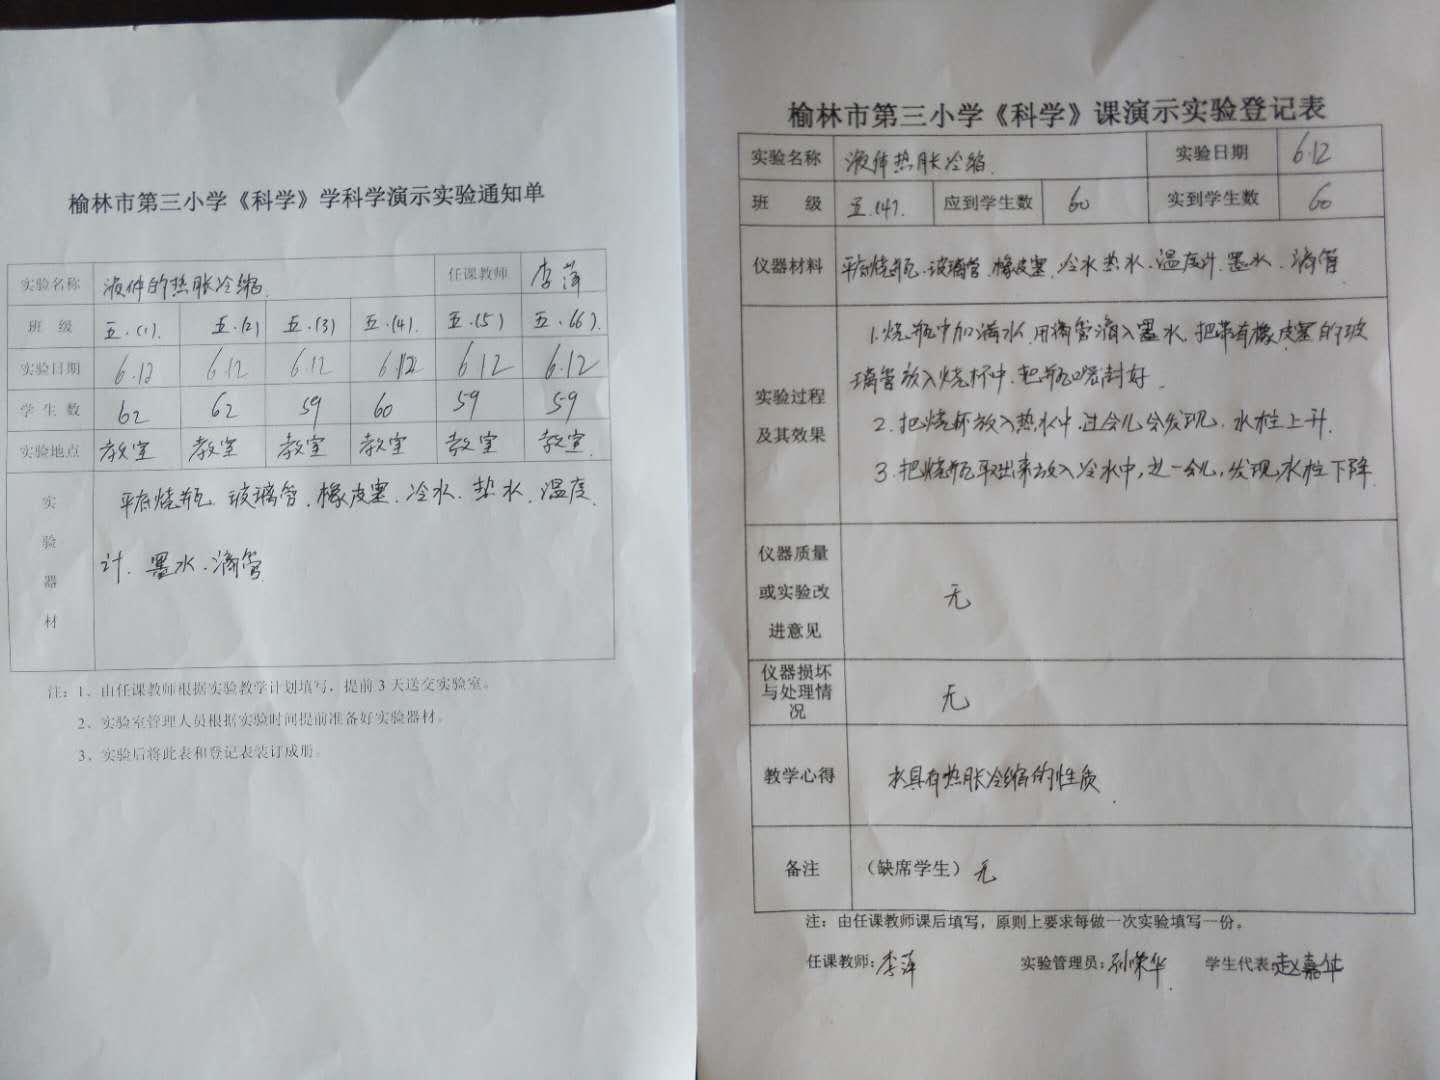 榆林市第三小学《科学》学科学演示实验通知单
实验名称 液体的热胀冷缩. 任课教师 李萍
班 级 五.(1). 五.(2) 五.(3) 五.(4). 五.(5) 五.(6).
实验日期 6.12 6.12 6.12 6.12 6.12 6.12
学 生 数 62 62 59 60 59 59
实验地点 教室 教室 教室 教室 教室 教室.
实验器材 平底烧瓶、玻璃管、橡皮塞、冷水、热水、温度
计、墨水、滴管
注：1、由任课教师根据实验教学计划填写，提前 3 天送交实验室。
2、实验室管理人员根据实验时间提前准备好实验器材。
3、实验后将此表和登记表装订成册。
榆林市第三小学《科学》课演示实验登记表
实验名称 液体热胀冷缩. 实验日期 6.12
班 级 五.(4). 应到学生数 60 实到学生数 60
仪器材料 平底烧瓶、玻璃管、橡皮塞、冷水热水、温度计、墨水、滴管
实验过程及其效果 1.烧瓶中加满水,用滴管滴入墨水,把带有橡皮塞的玻
璃管放入烧杯中,把瓶口密封好.
2.把烧杯放入热水中,过会儿会发现,水柱上升.
3.把烧瓶取出来放入冷水中,过一会儿,发现水柱下降.
仪器质量或实验改进意见 无
仪器损坏与处理情况 无
教学心得 水具有热胀冷缩的性质.
备注 （缺席学生）无
注：由任课教师课后填写，原则上要求每做一次实验填写一份。
任课教师：李萍 实验管理员：孙荣华 学生代表：赵嘉华